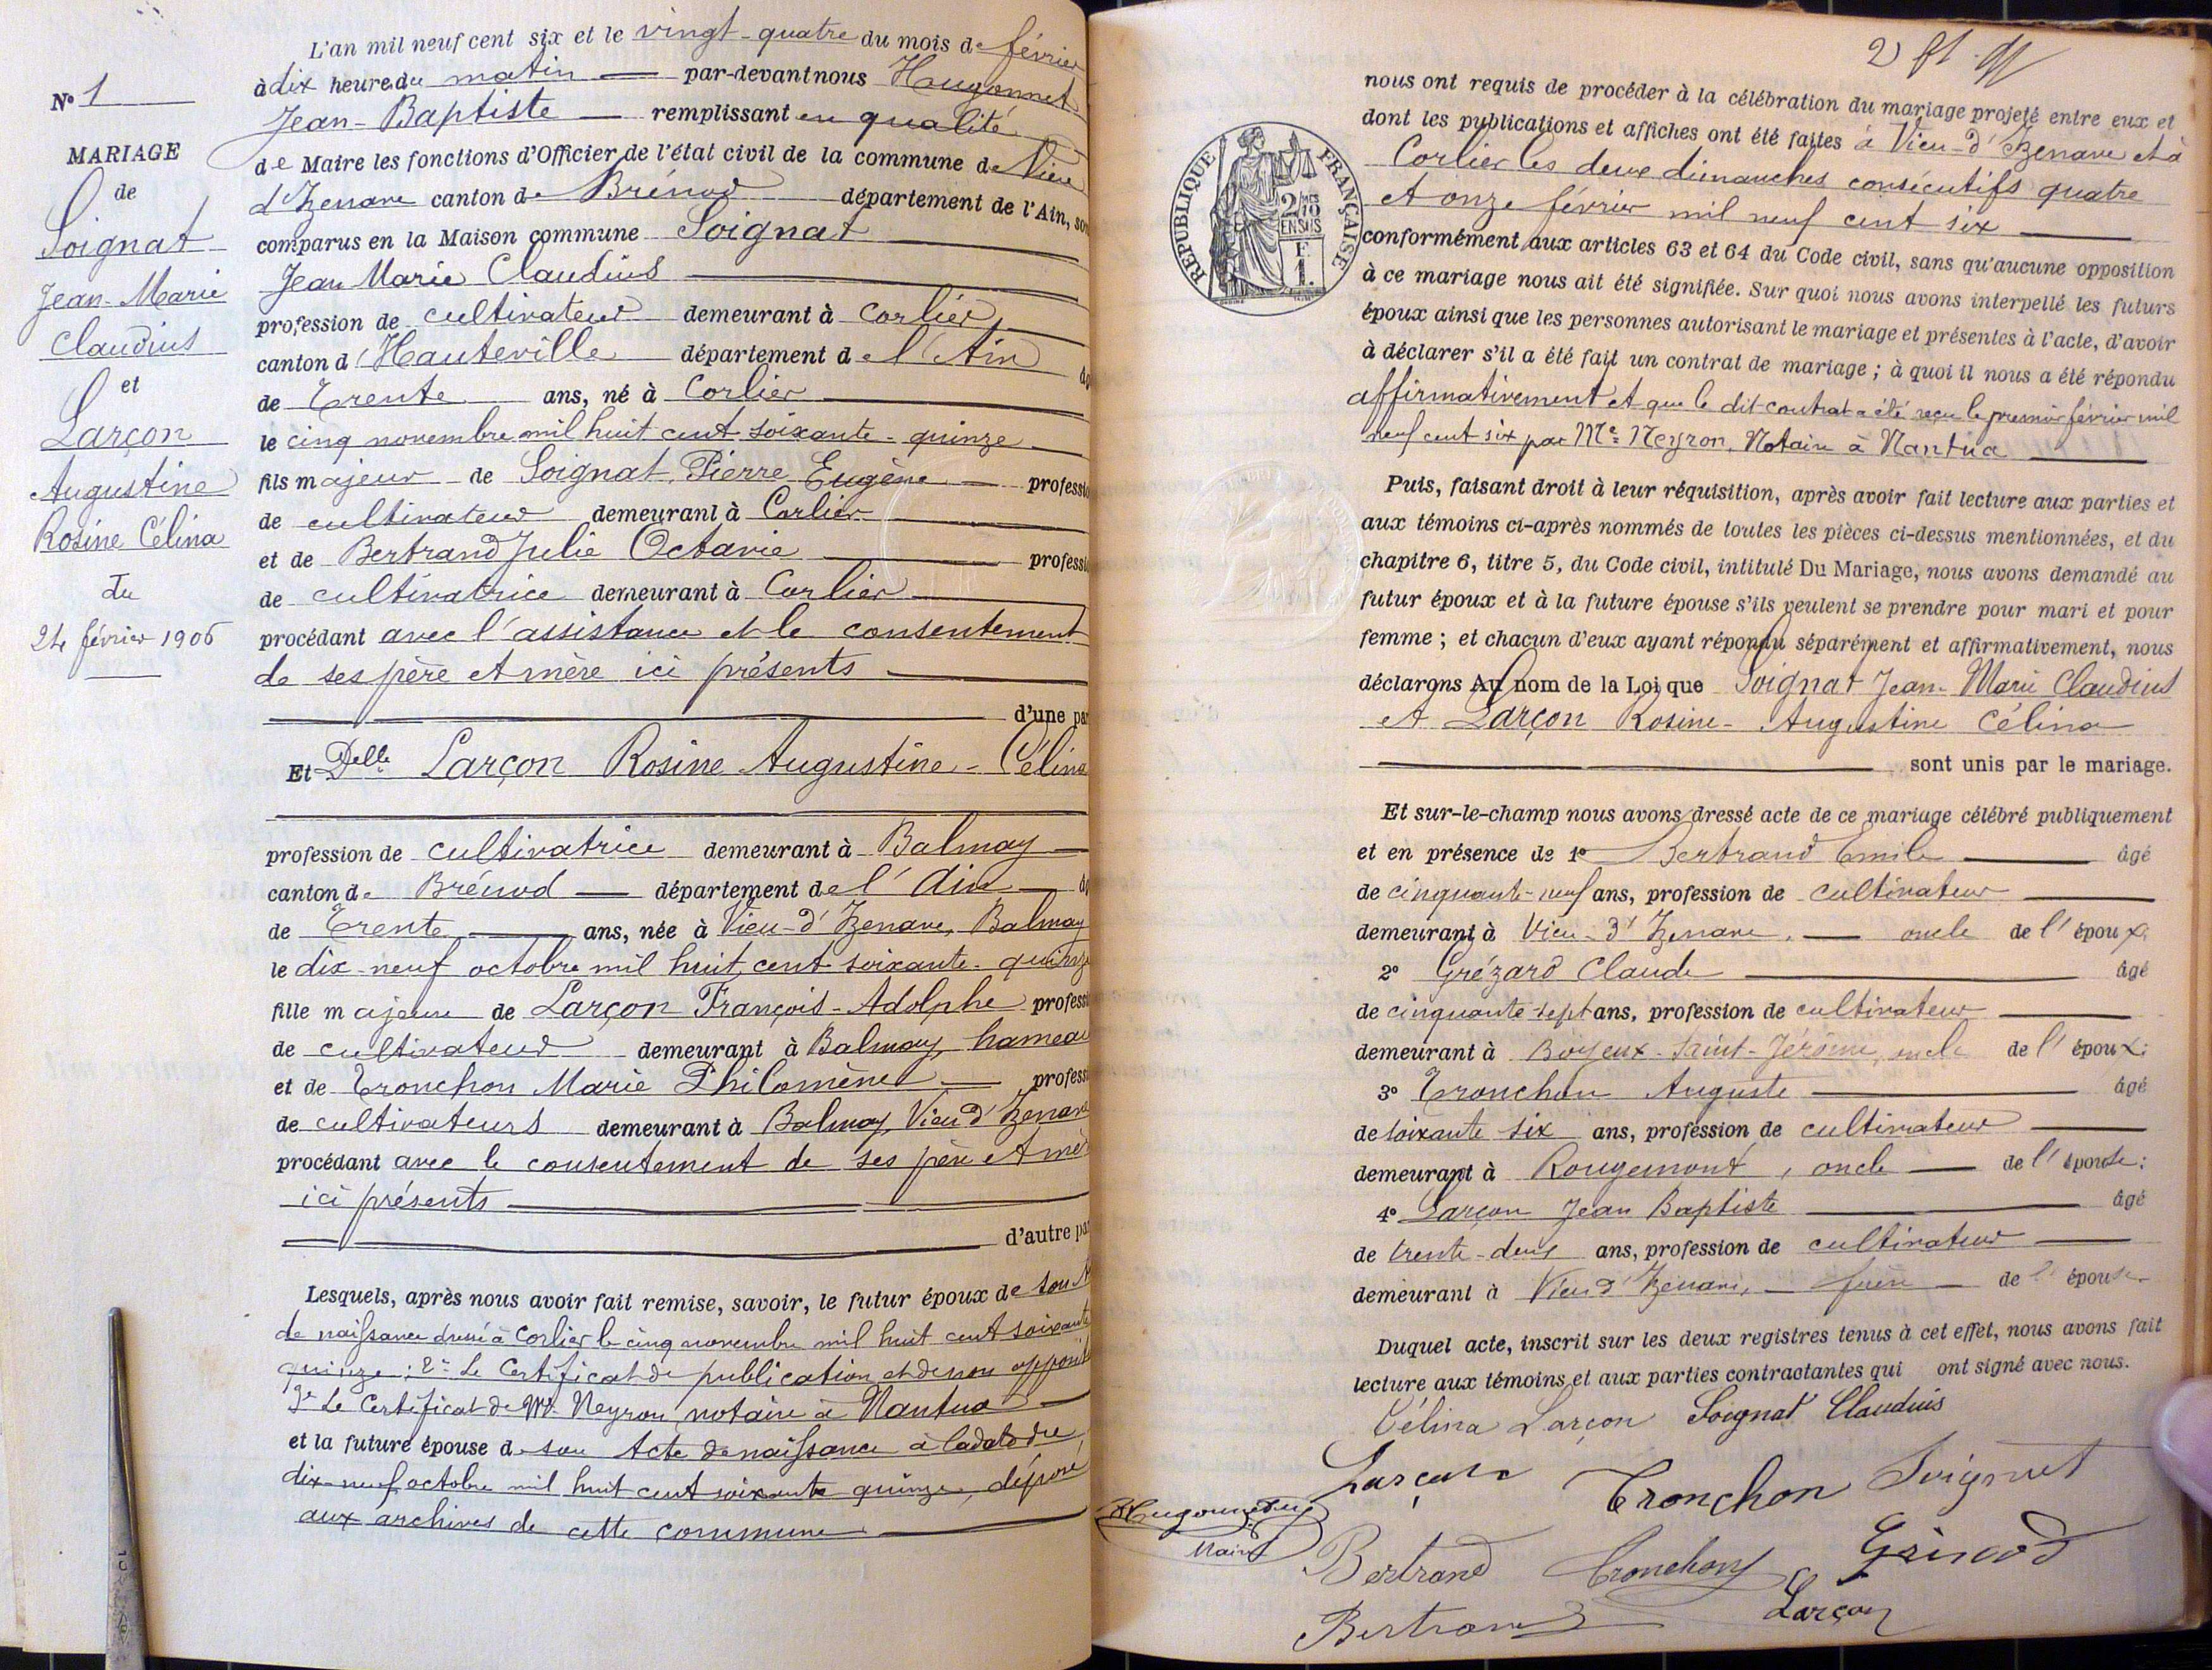 N° 1
MARIAGE
de
Soignat
Jean-Marie
Claudius
et
Larçon
Augustine
Rosine Célina
du
24 février 1906
L'an mil neuf cent six et le vingt-quatre du mois de février
à dix heure du matin par-devant nous Hugonnet
Jean-Baptiste remplissant en qualité
de Maire les fonctions d'Officier de l'état civil de la commune de Vieu
d'Izenave canton de Brénod département de l'Ain, so
comparus en la Maison commune Soignat
Jean Marie Claudius
profession de cultivateur demeurant à Corlier,
canton d'Hauteville département de l'Ain
de Trente ans, né à Corlier
le cinq novembre mil huit cent soixante-quinze
fils majeur de Soignat, Pierre Eugène professi
de cultivateur demeurant à Corlier
et de Bertrand Julie Octavie professi
de cultivatrice demeurant à Corlier
procédant avec l'assistance et le consentement
de ses père et mère ici présents
d'une par
Et Delle Larçon Rosine Augustine-Célina
profession de cultivatrice demeurant à Balmay
canton de Brénod département de l'Ain
de Trente ans, née à Vieu-d'Izenave, Balmay
le dix-neuf octobre mil huit cent soixante-quinze
fille majeure de Larçon François-Adolphe professi
de cultivateur demeurant à Balmay, hameau
et de Tronchon Marie Philomène professi
de cultivateurs demeurant à Balmay, Vieu d'Izenave
procédant avec le consentement de ses père et mèr
ici présents
d'autre par
Lesquels, après nous avoir fait remise, savoir, le futur époux de son
de naissance dressé à Corlier le cinq novembre mil huit cent soixante
quinze; 2° Le Certificat de publication et de non opposit
3° Le Certificat de Me Neyron notaire à Nantua
et la future épouse de son Acte de naissance à la date du
dix-neuf octobre mil huit cent soixante quinze, déposé
aux archives de cette commune
2)
REPUBLIQUE FRANÇAISE
2/10
EN SUS
F
1.
nous ont requis de procéder à la célébration du mariage projeté entre eux et
dont les publications et affiches ont été faites à Vieu-d'Izenave et à
Corlier les deux dimanches consécutifs quatre
et onze février mil neuf cent six
conformément aux articles 63 et 64 du Code civil, sans qu'aucune opposition
à ce mariage nous ait été signifiée. Sur quoi nous avons interpellé les futurs
époux ainsi que les personnes autorisant le mariage et présentes à l'acte, d'avoir
à déclarer s'il a été fait un contrat de mariage; à quoi il nous a été répondu
affirmativement et que le dit contrat a été reçu le premier février mil
neuf cent six par Me Neyron, Notaire à Nantua
Puis, faisant droit à leur réquisition, après avoir fait lecture aux parties et
aux témoins ci-après nommés de toutes les pièces ci-dessus mentionnées, et du
chapitre 6, titre 5, du Code civil, intitulé Du Mariage, nous avons demandé au
futur époux et à la future épouse s'ils veulent se prendre pour mari et pour
femme; et chacun d'eux ayant répondu séparément et affirmativement, nous
déclarons Au nom de la Loi que Soignat Jean-Marie Claudius
et Larçon Rosine-Augustine Célina
sont unis par le mariage.
Et sur-le-champ nous avons dressé acte de ce mariage célébré publiquement
et en présence de 1° Bertrand Emile âgé
de cinquante-neuf ans, profession de cultivateur
demeurant à Vieu-d'Izenave, oncle de l'époux;
2° Grézard Claude âgé
de cinquante-sept ans, profession de cultivateur
demeurant à Boyeux-Saint-Jérôme, oncle de l'époux;
3° Tronchon Auguste âgé
de soixante six ans, profession de cultivateur
demeurant à Rougemont, oncle de l'épouse;
4° Larçon Jean Baptiste âgé
de trente-deux ans, profession de cultivateur
demeurant à Vieu d'Izenave, frère de l'épouse
Duquel acte, inscrit sur les deux registres tenus à cet effet, nous avons fait
lecture aux témoins et aux parties contractantes qui ont signé avec nous.
Célina Larçon Soignat Claudius
Larçon Tronchon Soignat
Hugonnet
Maire
Bertrand Tronchon
Bertrand Larçon